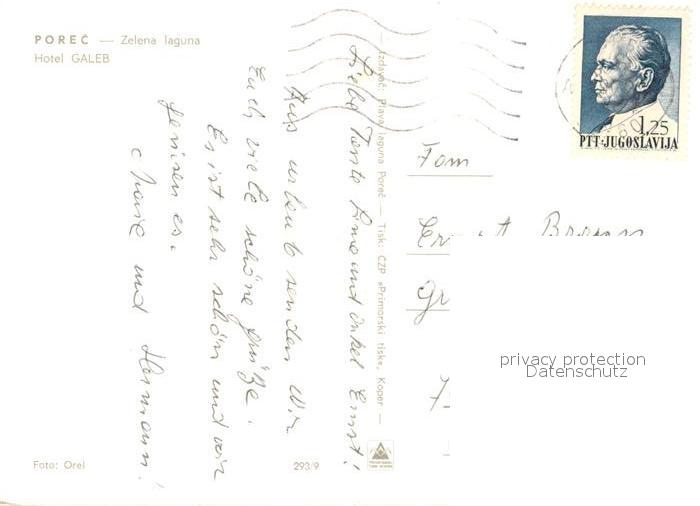 POREČ — Zelena laguna
Hotel GALEB
Liebe Tante Anna und Onkel Ernst!
Aus Urlaub senden Wir
Euch viele schöne Grüße.
Es ist sehr schön und wir
genießen es.
und Hermann!
Foto: Orel
293/9
— Izdavač: Plava laguna Poreč — Tisk: ČZP »Primorski tisk«, Koper —
1,25
PTT·JUGOSLAVIJA
Fam
privacy protection
Datenschutz